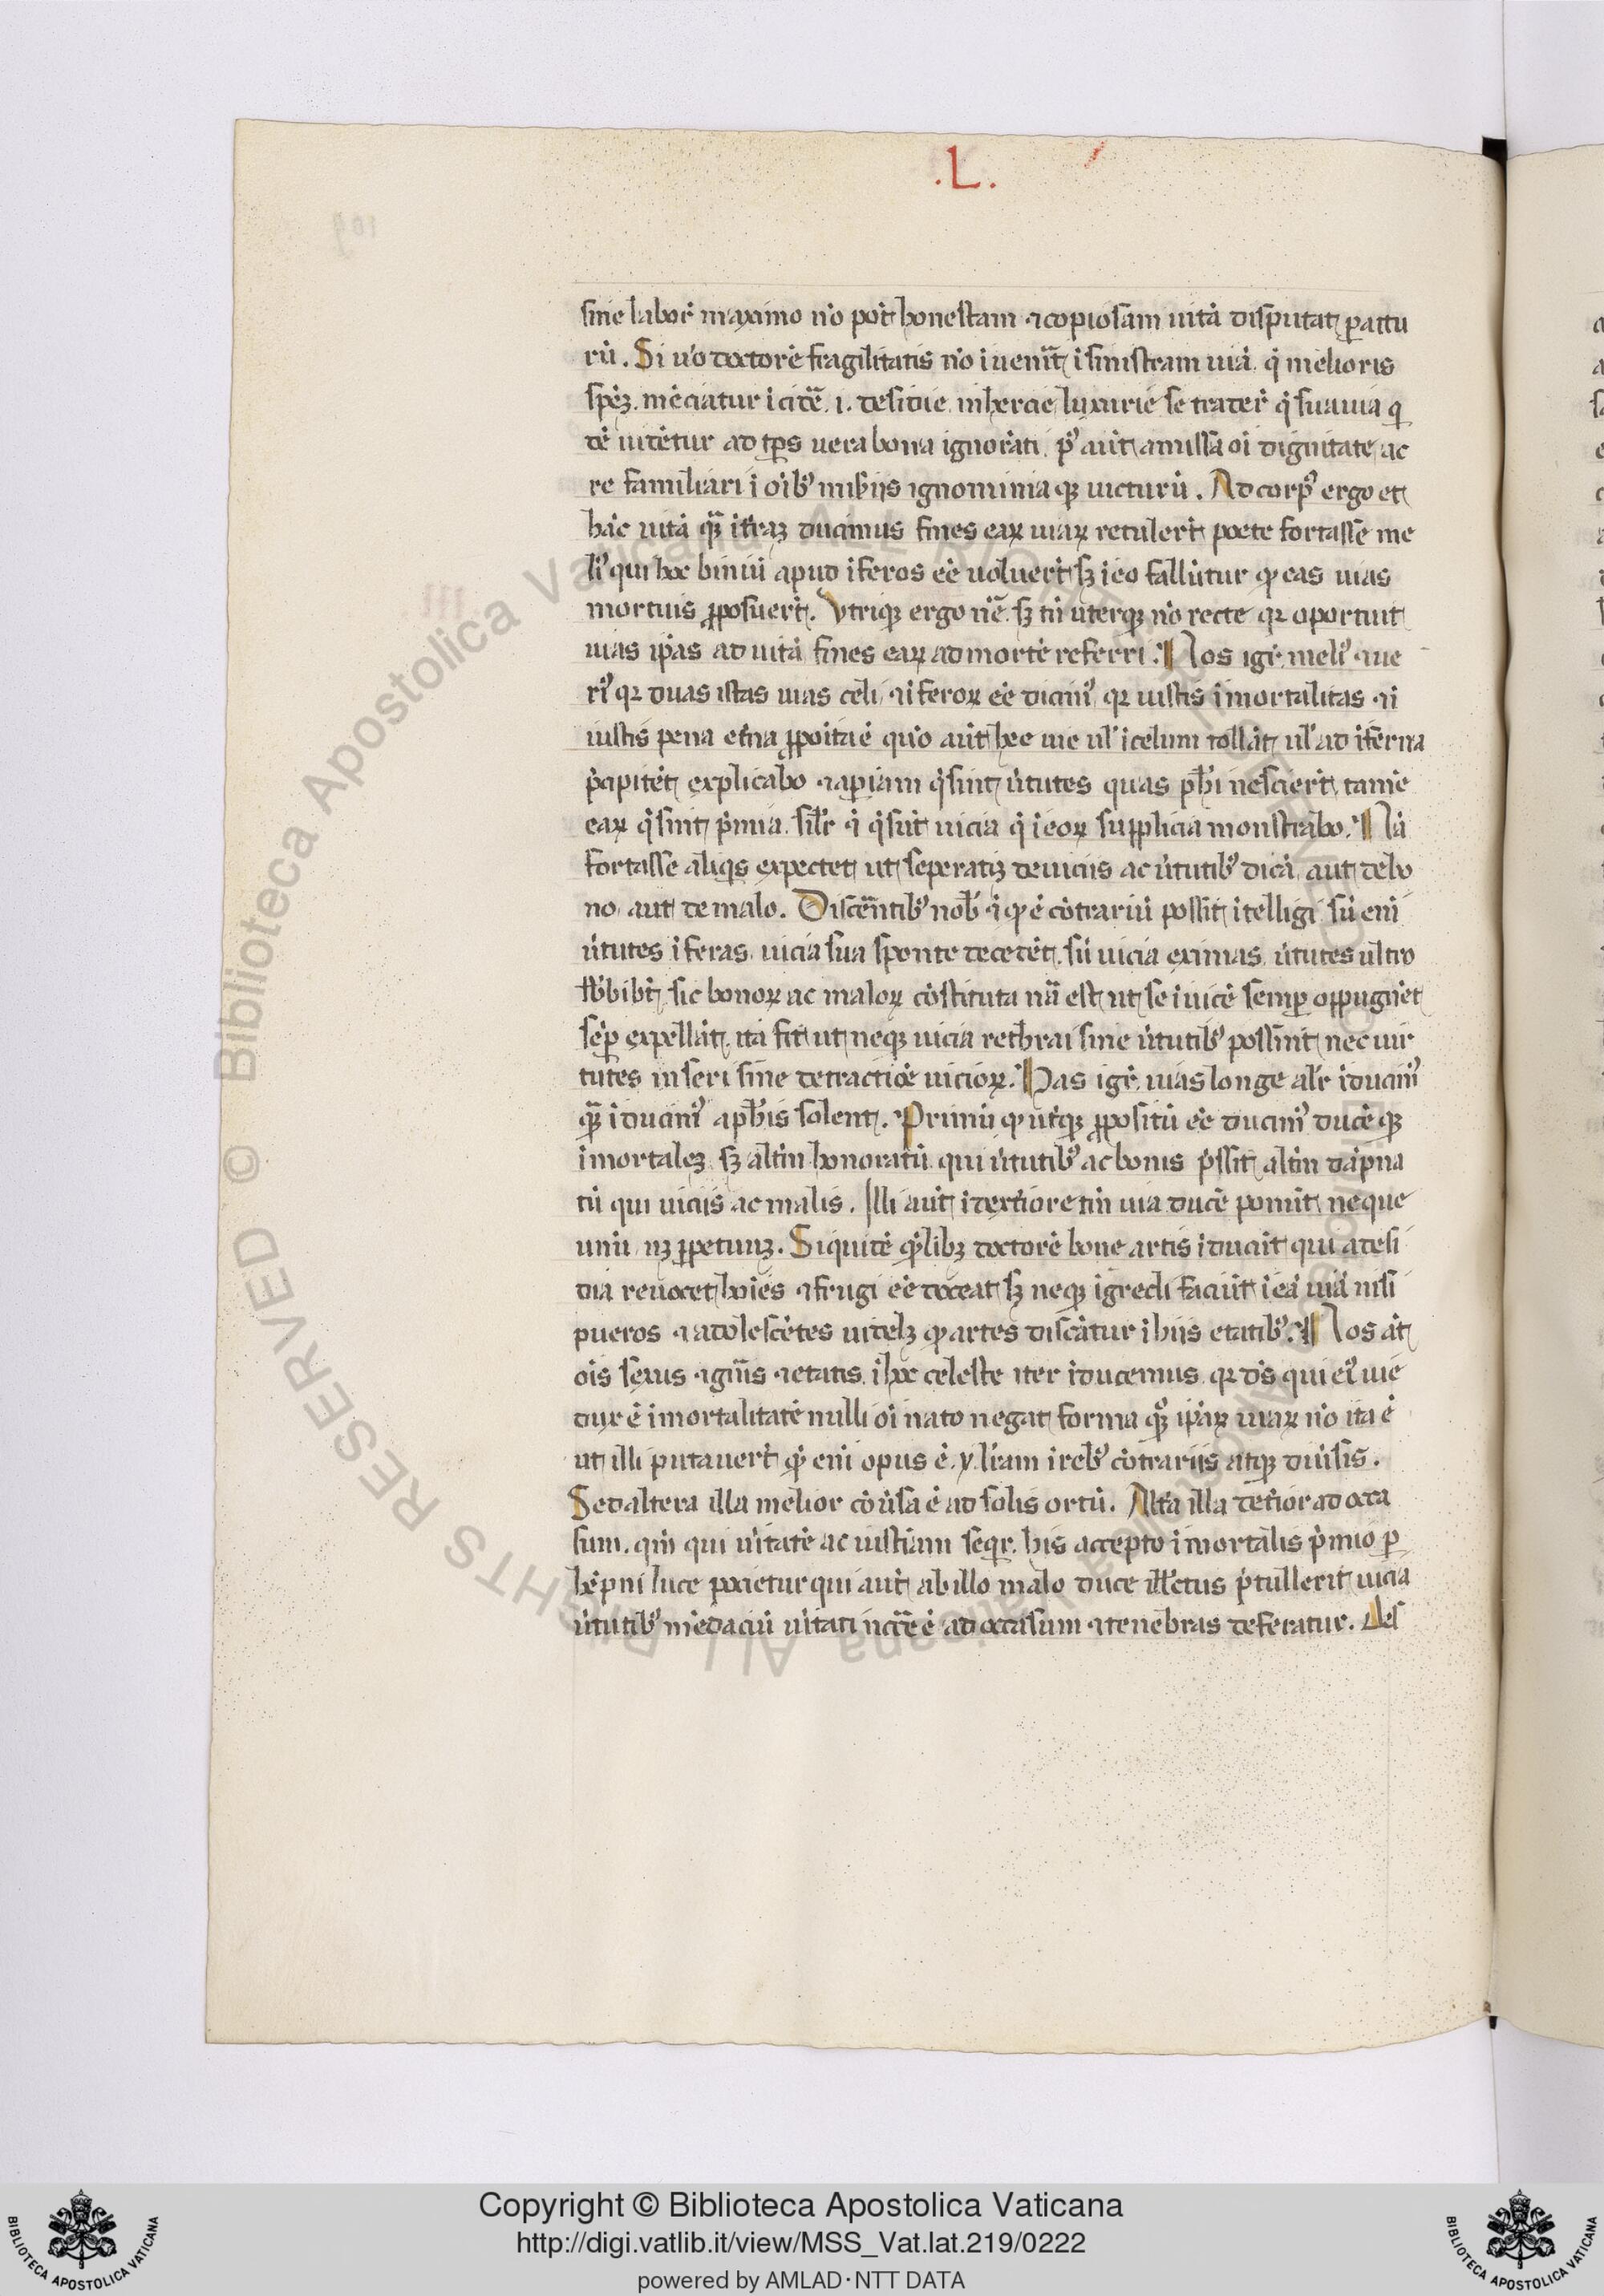 .L.
sine laborẽ maximo nõ põt honestam ⁊ copiosam uitã disputat ꝑactu
rũ. Si uõ doctorẽ fragilitatis nõ ĩuenit ĩ sinistram uiã q̃ melioris
spẽꝫ mẽciatur ĩcidẽ .i. desidie inhercie luxurie se traderẽ q̃ suauia q
dẽ uidẽtur ad tꝑs uera bona ignorãti pꝰ aũt amissa oĩ dignitate ac
re familiari ĩ oĩbꝰ ignominia qꝫ uicturũ. Ad corpꝰ ergo et
hãc uitã q̃ ĩ ducimus fines eaꝝ uiaꝝ retulerũt poete fortasse me
liꝰ qui hoc biuiũ apud ĩferos eẽ uoluerũt sꝫ ĩ eo fallũtur ꝙ eas uias
mortuis ꝓposuerũt. Vtriqꝫ ergo sꝫ tñ uterqꝫ nõ recte qꝛ oportuit
uias ip̃as ad uitã fines eaꝝ ad mortẽ referri. ¶ Nos igĩr meliꝰ ⁊ ue
riꝰ qꝛ duas istas uias celi ⁊ ĩferoꝝ eẽ dicimꝰ qꝛ iustis ĩmortalitas ⁊ ĩ
iustis pena et̃na ꝓpoita ẽ quõ aũt hee uie ul̃ ĩ celum tollãt ul̃ ad ĩferna
p̃cipitẽt explicabo ⁊ apiam q̃ sint ũtutes quas ph̃i nescierũt tamẽ
eaꝝ q̃ sint p̃mia sil̃r ⁊ q̃ sũt uicia q̃ ĩ eoꝝ supplicia monstrabo. ¶ Nã
fortasse aliq̃s expectet ut seperatiꝫ de uiciis ac ũtutibꝰ dicã aut de bo
no aut de malo. Discẽntibꝰ nob̃ ⁊ ꝙ ẽ cõtrariũ possit ĩtelligi sũ eni
ũtutes ĩferas uicia sua sponte decedẽt sũ uicia eximas ũtutes ultro
sic bonoꝝ ac maloꝝ cõstituta nã est ut se ĩuicẽ semꝑ oppugnẽt
sẽꝑ expellãt ita fit ut neqꝫ uicia rethrai sine ũtutibꝰ possint nec uir
tutes inseri sine detractiõe uicioꝝ. ¶ Has igĩr uias longe al̃r ĩducimꝰ
q̃ ĩducimꝰ a ph̃is solent. Primũ ꝙ ut̃qꝫ ꝓpositũ eẽ ducimꝰ ducẽ qꝫ
ĩmortaleꝫ sꝫ alt̃m honoratũ qui ũtutibꝰ ac bonis p̃ssit alt̃m dãpna
tũ qui uiciis ac malis. Illi aũt ĩ dext̃iore tm̃ uia ducẽ ponũt neque
unũ nꝫ ꝑpetuuꝫ. Siquidẽ q̃libꝫ doctorẽ bone artis ĩducũt qui a desi
dia reuocet hoĩes ⁊ frugi eẽ doceat sꝫ neqꝫ ĩgredi faciũt ĩ eã uiã nisi
pueros ⁊ adolescẽtes uidelꝫ ꝙ artes discãtur ĩ hiis etatibꝰ. ¶ Nos ãt
oĩs sexus ⁊ gñis ⁊ etatis ĩ hoc celeste iter ĩducemus qꝛ dẽs qui eiꝰ uie
dux ẽ ĩmortalitatẽ nulli oĩ nato negat forma qꝫ ip̃aꝝ uiaꝝ nõ ita ẽ
ut illi putauerũt q̃ eni opus ẽ .y. lr̃am ĩ rebꝰ cõtrariis atqꝫ diũsis.
Sed altera illa melior cõũsa ẽ ad solis ortũ. Alt̃a illa det̃ior ad occa
sum. qm̃ qui ũitatẽ ac iustiam seqr̃ his accepto ĩmortalis p̃mio ꝑ
hẽpni luce pocietur qui aũt ab illo malo duce p̃tullerit uicia
ũtutibꝰ mẽdaciũ ũitati ncc̃e ẽ ad occasum ⁊ tenebras deferatur.
Copyright © Biblioteca Apostolica Vaticana
http://digi.vatlib.it/view/MSS_Vat.lat.219/0222
powered by AMLAD·NTT DATA
BIBLIOTECA APOSTOLICA VATICANA
BIBLIOTECA APOSTOLICA VATICANA
© Biblioteca Apostolica Vaticana ALL RIGHTS RESERVED